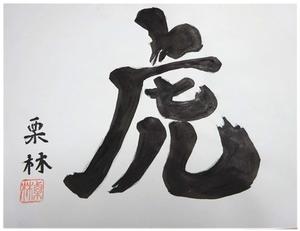 虎
栗林